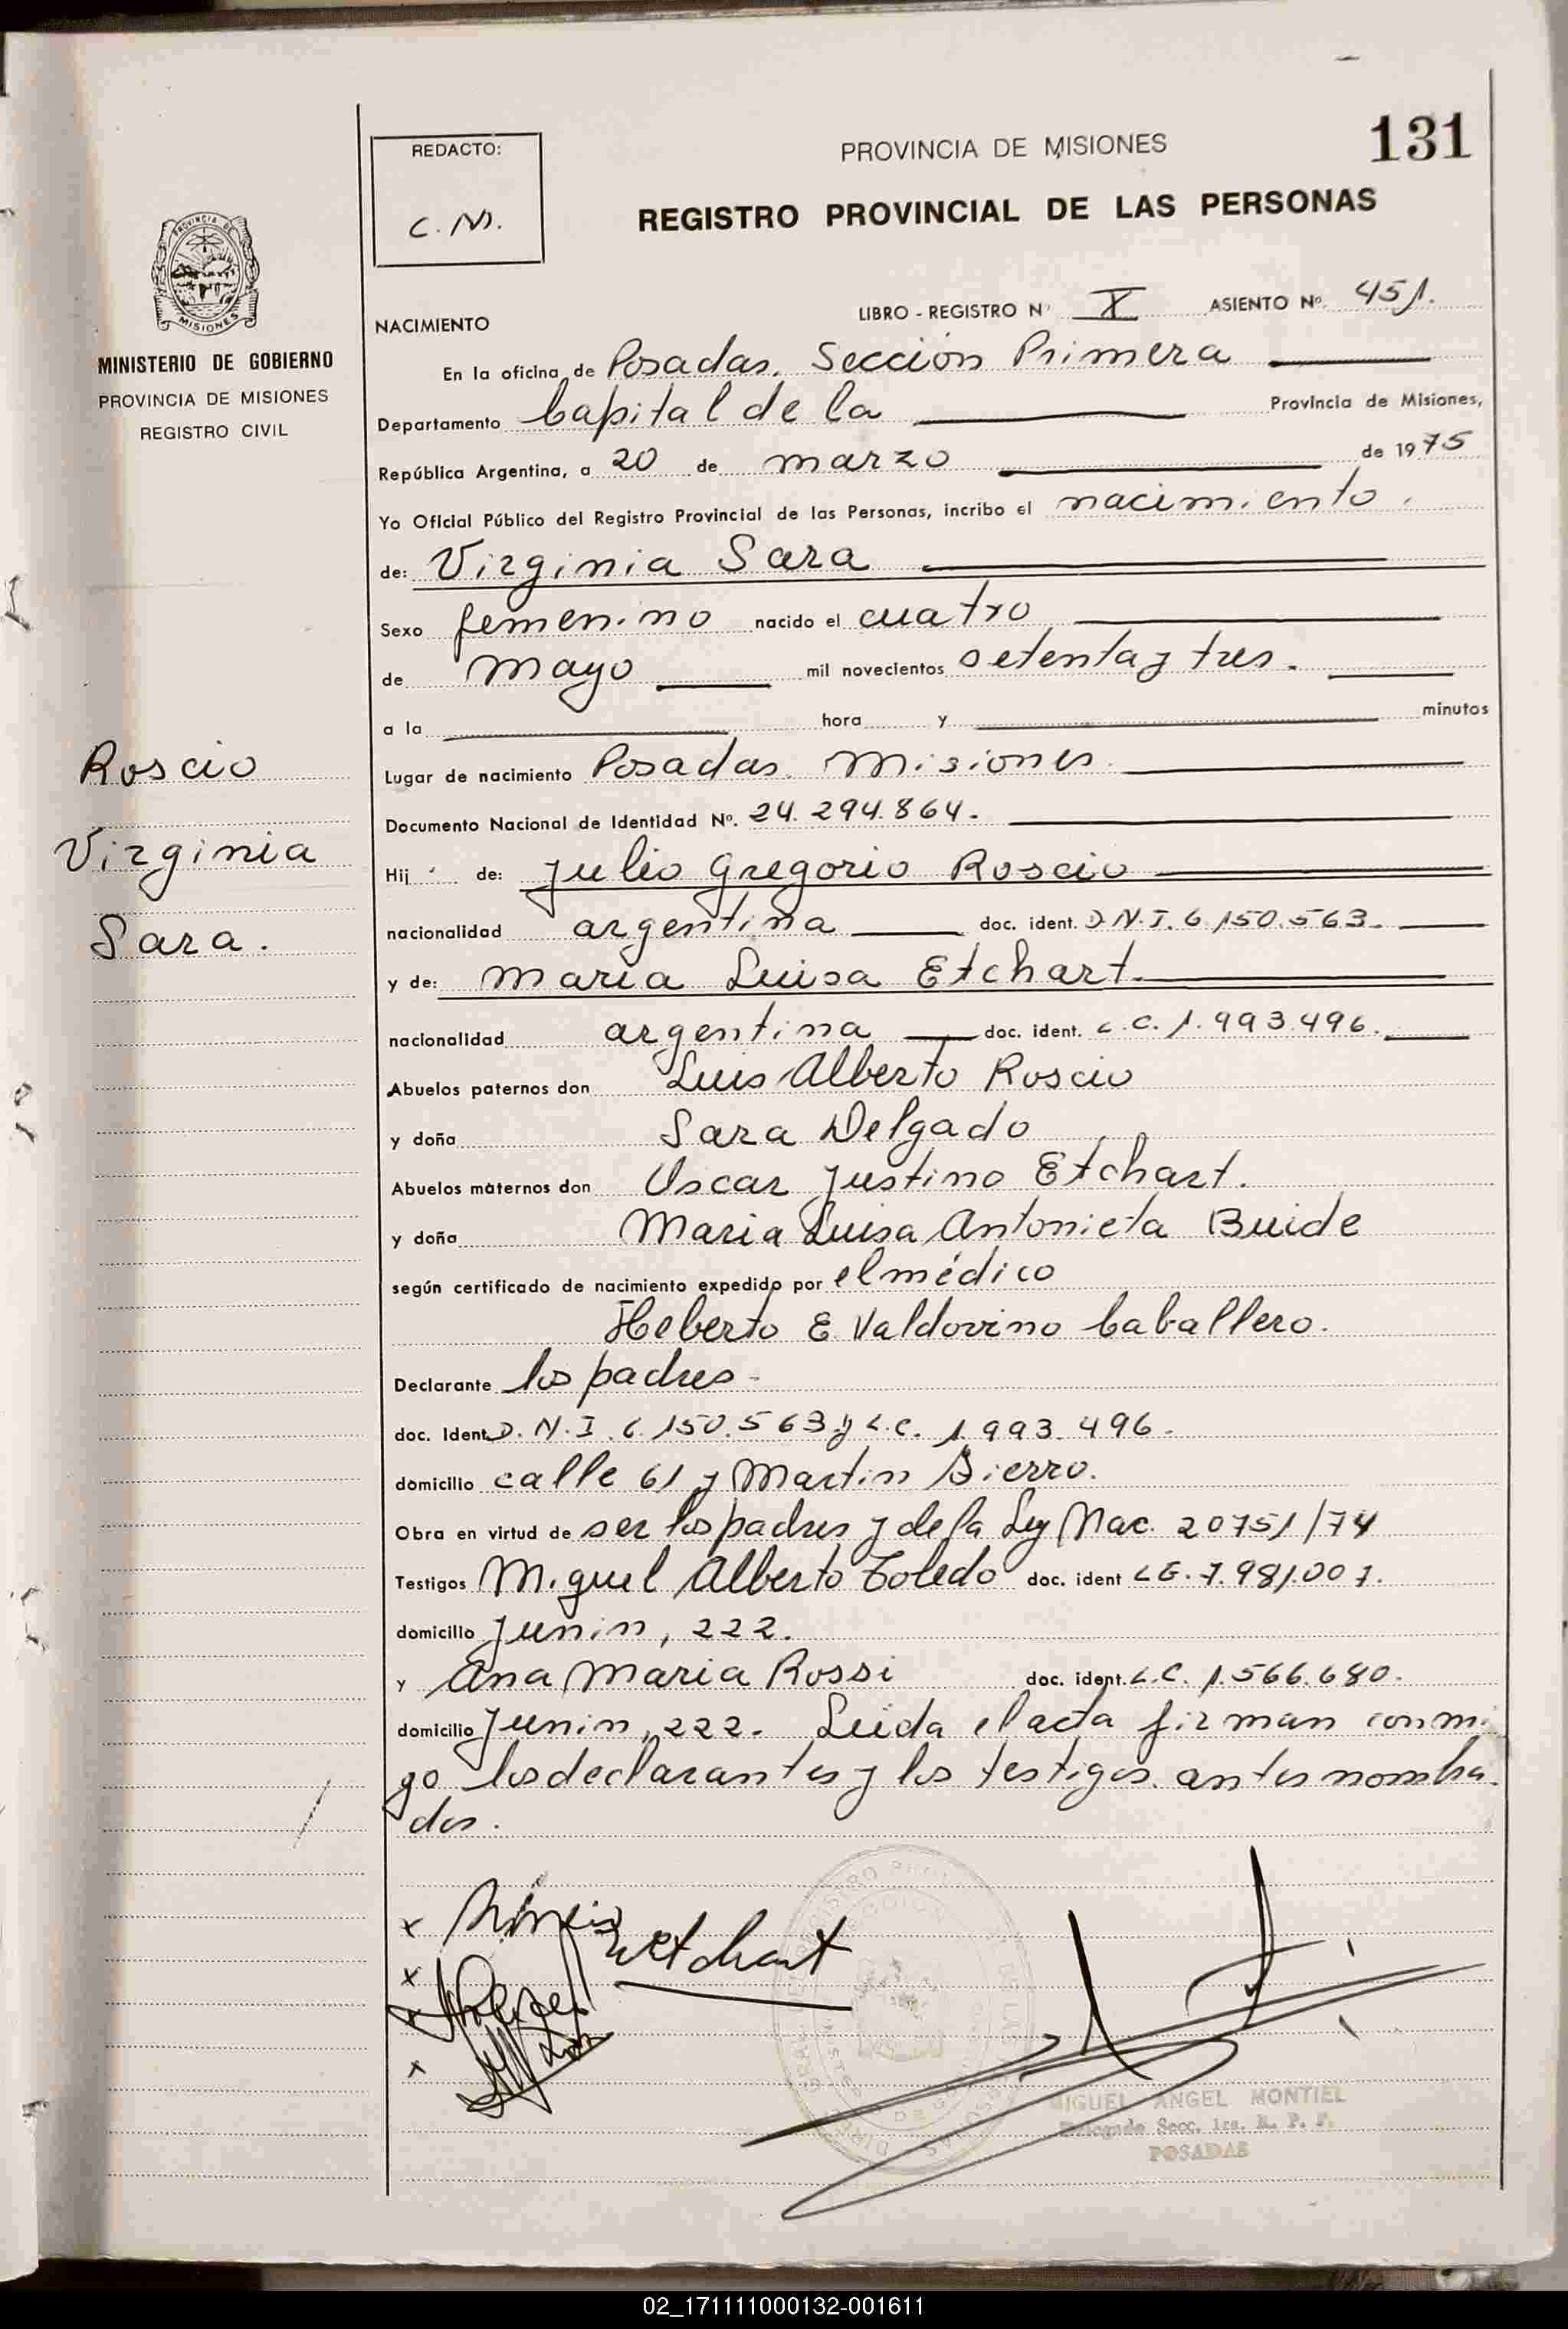 131
PROVINCIA DE MISIONES
REGISTRO PROVINCIAL DE LAS PERSONAS
REDACTO:
C. N.
PROVINCIA DE
MISIONES
MINISTERIO DE GOBIERNO
PROVINCIA DE MISIONES
REGISTRO CIVIL
Roscio
Virginia
Sara.
NACIMIENTO
LIBRO - REGISTRO Nº X ASIENTO Nº. 451.
En la oficina de Posadas. Sección Primera
Departamento Capital de la Provincia de Misiones,
República Argentina, a 20 de marzo de 1975
Yo Oficial Público del Registro Provincial de las Personas, incribo el nacimiento.
de: Virginia Sara
Sexo femenino nacido el cuatro
de mayo mil novecientos setenta y tres.
a la hora y minutos
Lugar de nacimiento Posadas. Misiones.
Documento Nacional de Identidad Nº. 24.294.864.
Hij de: Julio Gregorio Roscio
nacionalidad argentina doc. ident. D.N.I. 6.150.563.
y de: Maria Luisa Etchart.
nacionalidad argentina doc. ident. L.C. 1.993.496.
Abuelos paternos don Luis Alberto Roscio
y doña Sara Delgado
Abuelos maternos don Oscar Justino Etchart.
y doña Maria Luisa Antonieta Buide
según certificado de nacimiento expedido por el médico
Heberto E Valdovino Caballero.
Declarante los padres.
doc. Ident. D.N.I. 6.150.563 y L.C. 1.993.496.
domicilio calle 61 y Martin Fierro.
Obra en virtud de ser los padres y de la Ley Nac. 20751/74
Testigos Miguel Alberto Toledo doc. ident L.E. 7.981.007.
domicilio Junin, 222.
y Ana Maria Rossi doc. ident. L.C. 1.566.680.
domicilio Junin, 222. Leida el acta firman conmi
go los declarantes y los testigos antes nombra
dos.
Etchart
MIGUEL ANGEL MONTIEL
Delegado Secc. 1ra. R. P. P.
POSADAS
02_171111000132-001611